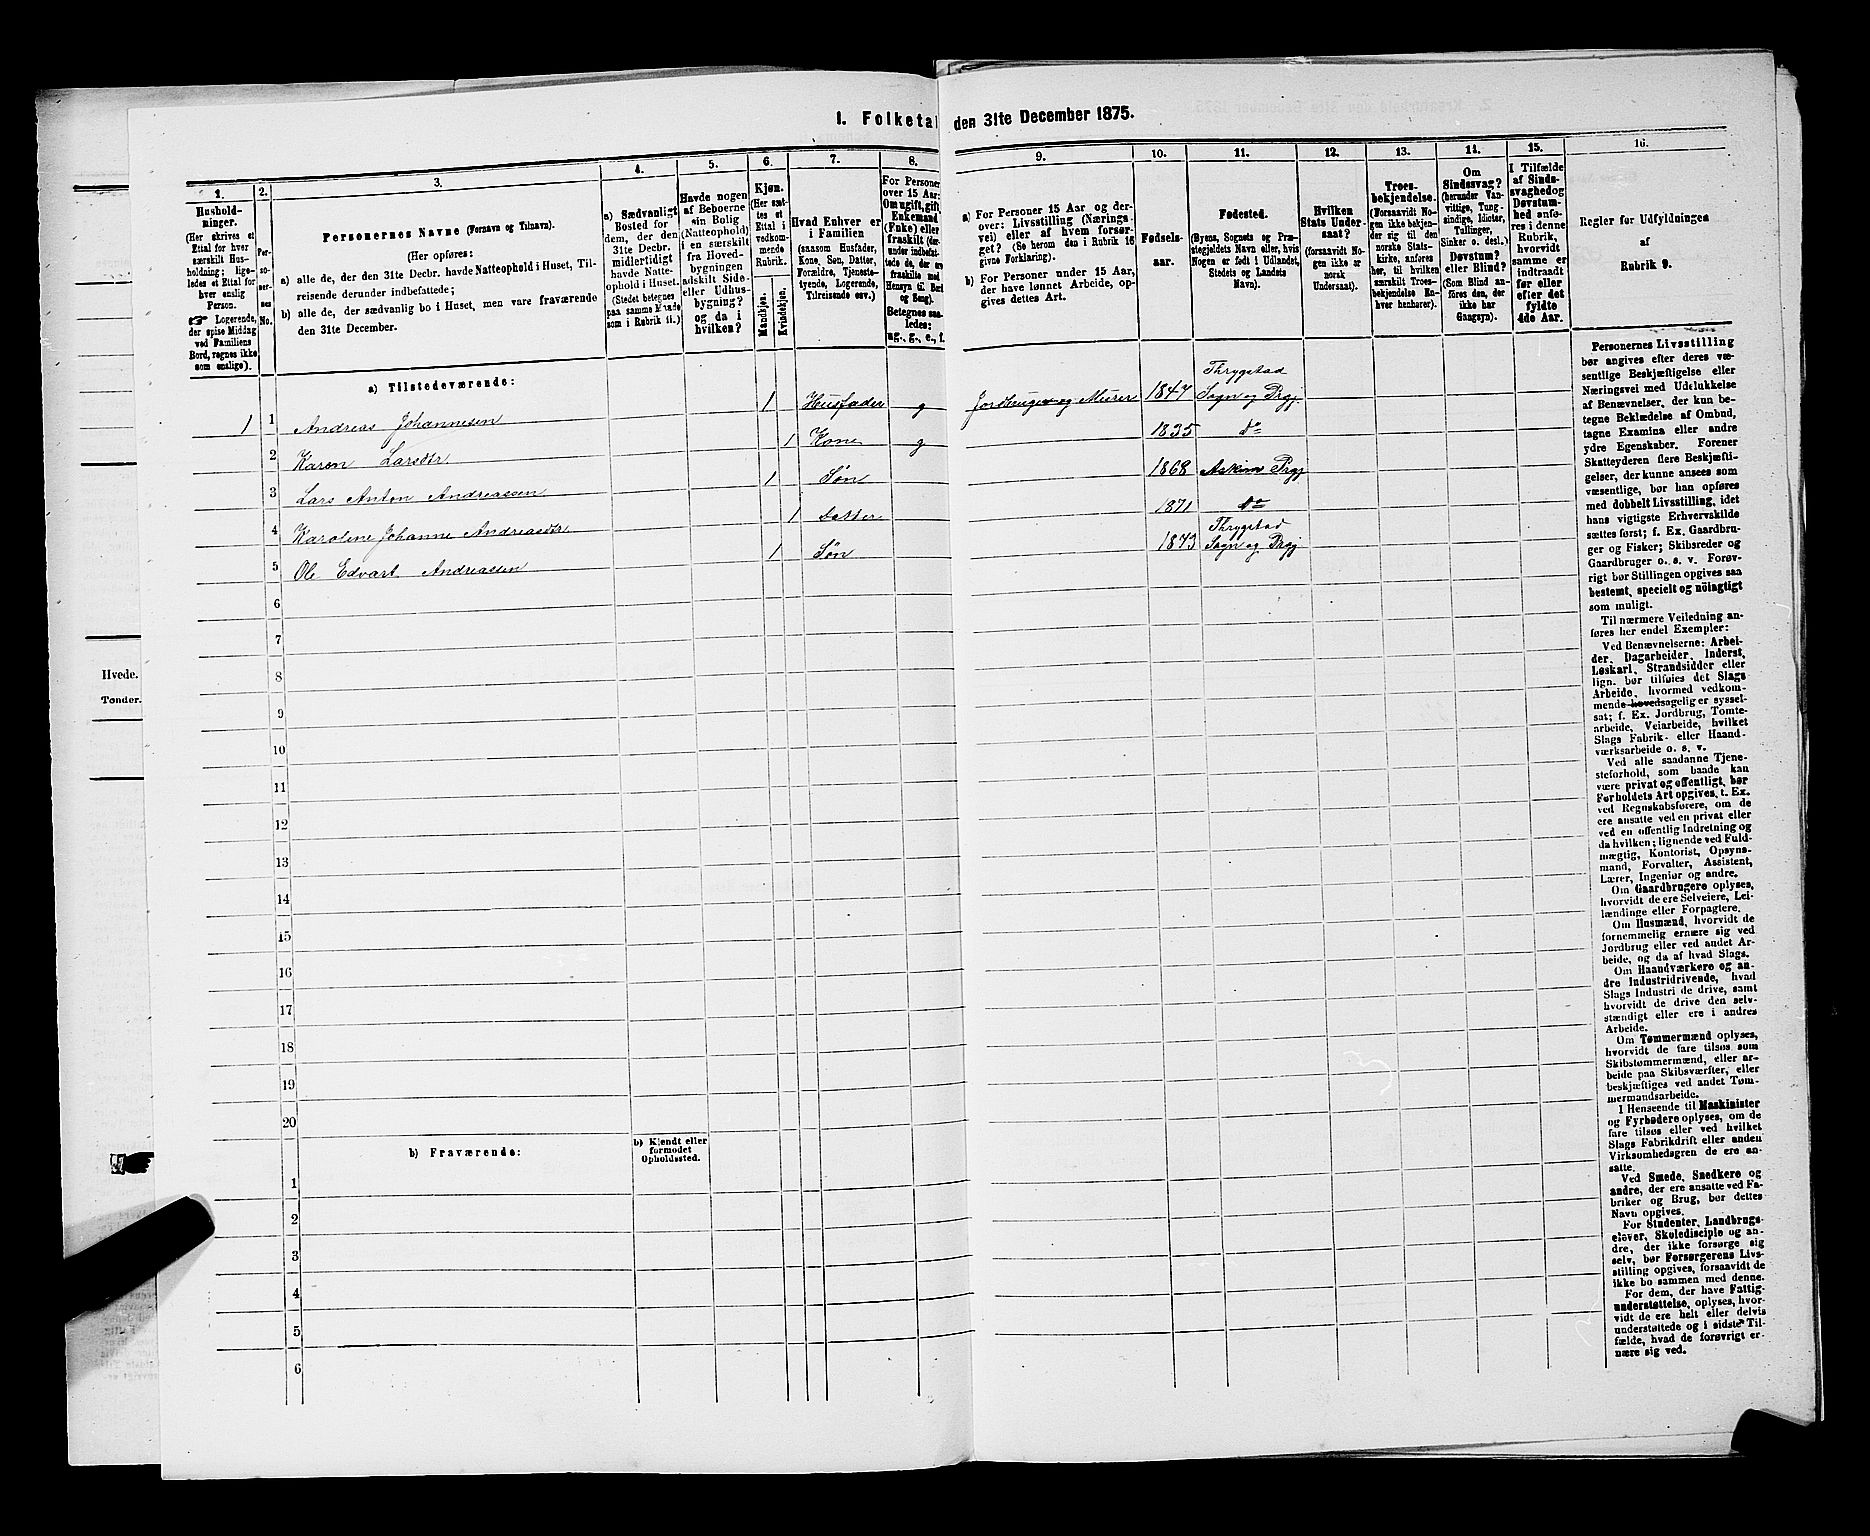 1. Folketal den 31te December 1875.
1.
Hushold-
ninger.
(Her skrives et
Ettal for hver
særskilt Hus-
holdning; lige-
ledes et Ettal for
hver enslig
Person.
☞ Logerende,
der spise Middag
ved Familiens
Bord, regnes ikke
som enslige).
2.
Per-
so-
ner-
nes
No.
3.
Personernes Navne (Fornavn og Tilnavn).
(Her opføres:
a) alle de, der den 31te Decbr. havde Natteophold i Huset, Til-
reisende derunder indbefattede;
b) alle de, der sædvanlig bo i Huset, men vare fraværende
den 31te December.
4.
a) Sædvanligt
Bosted for
dem, der den
31te Decbr.
midlertidigt
havde Natte-
ophold i Huset.
(Stedet betegnes
paa samme Maade
som i Rubrik 11.)
5.
Havde nogen
af Beboerne
sin Bolig
(Natteophold)
i en særskilt
fra Hoved-
bygningen
adskilt Side-
eller Udhus-
bygning?
og da i
hvilken?
6.
Kjøn.
(Her sæt-
tes et
Ettal i
vedkom-
mende
Rubrik.
Mandkjøn.
Kvindekjøn.
7.
Hvad Enhver er
i Familien
(saasom Husfader,
Kone, Søn, Datter,
Forældre, Tjeneste-
tyende, Logerende,
Tilreisende osv.)
8.
For Personer
over 15 Aar:
Om ugift, gift,
Enkemand
(Enke) eller
fraskilt (der-
under indbefat-
tede de, der ere
fraskilte med
Hensyn til Bord
og Seng).
Betegnes saa-
ledes:
ug., g., e., f.
9.
a) For Personer 15 Aar og der-
over: Livsstilling (Nærings-
vei) eller af hvem forsør-
get? (Se herom den i Rubrik 16
givne Forklaring).
b) For Personer under 15 Aar,
der have lønnet Arbeide, op-
gives dettes Art.
10.
Fødsels-
aar.
11.
Fødested.
(Byens, Sognets og Præ-
stegjeldets Navn eller, hvis
Nogen er født i Udlandet,
Stedets og Landets
Navn).
12.
Hvilken
Stats Under-
saat?
(forsaavidt No-
gen ikke er
norsk
Undersaat).
13.
Troes-
bekjendelse.
(Forsaavidt No-
gen ikke bekjen-
der sig til den
norske Stats-
kirke, anføres
her, til hvilken
særskilt Troes-
bekjendelse En-
hver henhører).
14.
Om
Sindssvag?
(herunder Van-
vittige, Tung-
sindige, Idioter,
Tullinger,
Sinker o. desl.)
Døvstum?
eller Blind?
(Som Blind an-
føres den, der
ikke har
Gangsyn).
15.
I Tilfælde
af Sinds-
svaghed og
Døvstum-
hed anfø-
res i denne
Rubrik,
hvorvidt
samme er
indtraadt
før eller
efter det
fyldte
4de Aar.
16.
Regler for Udfyldningen
af
Rubrik 9.
a) Tilstedeværende:
1 1 Andreas Johannesen 1 Husfader g Jordbruger og Murer 1847 Thrygstad Sogn og Prgj.
2 Karen Larsdtr 1 Kone g 1835 do
3 Lars Anton Andreassen 1 Søn 1868 Askim Prgj
4 Karoline Johanne Andreasdtr 1 Datter 1871 do
5 Ole Edvart Andreassen 1 Søn 1873 Thrygstad Sogn og Prgj.
6
7
8
9
10
11
12
13
14
15
16
17
18
19
20
b) Fraværende:
b) Kjendt eller
formodet
Opholdssted.
1
2
3
4
5
6
Personernes Livsstilling
bør angives efter deres væ-
sentlige Beskjæftigelse eller
Næringsvei med Udelukkelse
af Benævnelser, der kun be-
tegne Beklædelse af Ombud,
tagne Examina eller andre
ydre Egenskaber. Forener
Skatteyderen flere Beskjæfti-
gelser, der kunne ansees som
væsentlige, bør han opføres
med dobbelt Livsstilling, idet
hans vigtigste Erhvervskilde
sættes først; f. Ex. Gaardbru-
ger og Fisker; Skibsreder og
Gaardbruger o. s. v. Forøv-
rigt bør Stillingen opgives saa
bestemt, specielt og nöiagtigt
som muligt.
Til nærmere Veiledning an-
føres her endel Exempler:
Ved Benævnelserne: Arbei-
der, Dagarbeider, Inderst,
Løskarl, Strandsidder eller
lign. bør tilføies det Slags
Arbeide, hvormed vedkom-
mende hovedsagelig er syssel-
sat; f. Ex. Jordbrug, Tomte-
arbeide, Veiarbeide, hvilket
Slags Fabrik- eller Haand-
værksarbeide o. s. v.
Ved alle saadanne Tjene-
steforhold, som baade kan
være privat og offentligt, bør
Forholdets Art opgives, t. Ex.
ved Regnskabsførere, om de
ere ansatte ved en privat eller
ved en offentlig Indretning og
da hvilken; lignende ved Fuld-
mægtig, Kontorist, Opsyns-
mand, Forvalter, Assistent,
Lærer, Ingeniør og andre.
Om Gaardbrugere oplyses,
hvorvidt de ere Selveiere, Lei-
lændinge eller Forpagtere.
Om Husmænd, hvorvidt de
fornemmelig ernære sig ved
Jordbrug eller ved andet Ar-
beide, og da af hvad Slags.
Om Haandværkere og an-
dre Industridrivende, hvad
Slags Industri de drive, samt
hvorvidt de drive den selv-
stændigt eller ere i andres
Arbeide.
Om Tømmermænd oplyses,
hvorvidt de fare tilsøs som
Skibstømmermænd, eller ar-
beide paa Skibsværfter, eller
beskjæftiges ved andet Tøm-
mermandsarbeide.
I Henseende til Maskinister
og Fyrbødere oplyses, om de
fare tilsøs eller ved hvilket
Slags Fabrikdrift eller anden
Virksomhedsgren de ere an-
satte.
Ved Smede, Snedkere og
andre, der ere ansatte ved Fa-
briker og Brug, bør dettes
Navn opgives.
For Studenter, Landbrugs-
elever, Skoledisciple og an-
dre, der ikke forsørge sig
selv, bør Forsørgerens Livs-
stilling opgives, forsaavidt de
ikke bo sammen med denne.
For dem, der have Fattig-
understøttelse, oplyses, hvor-
vidt de ere helt eller delvis
understøttede og i sidste Til-
fælde, hvad de forøvrigt er-
nære sig ved.
Hvede.
Tønder.